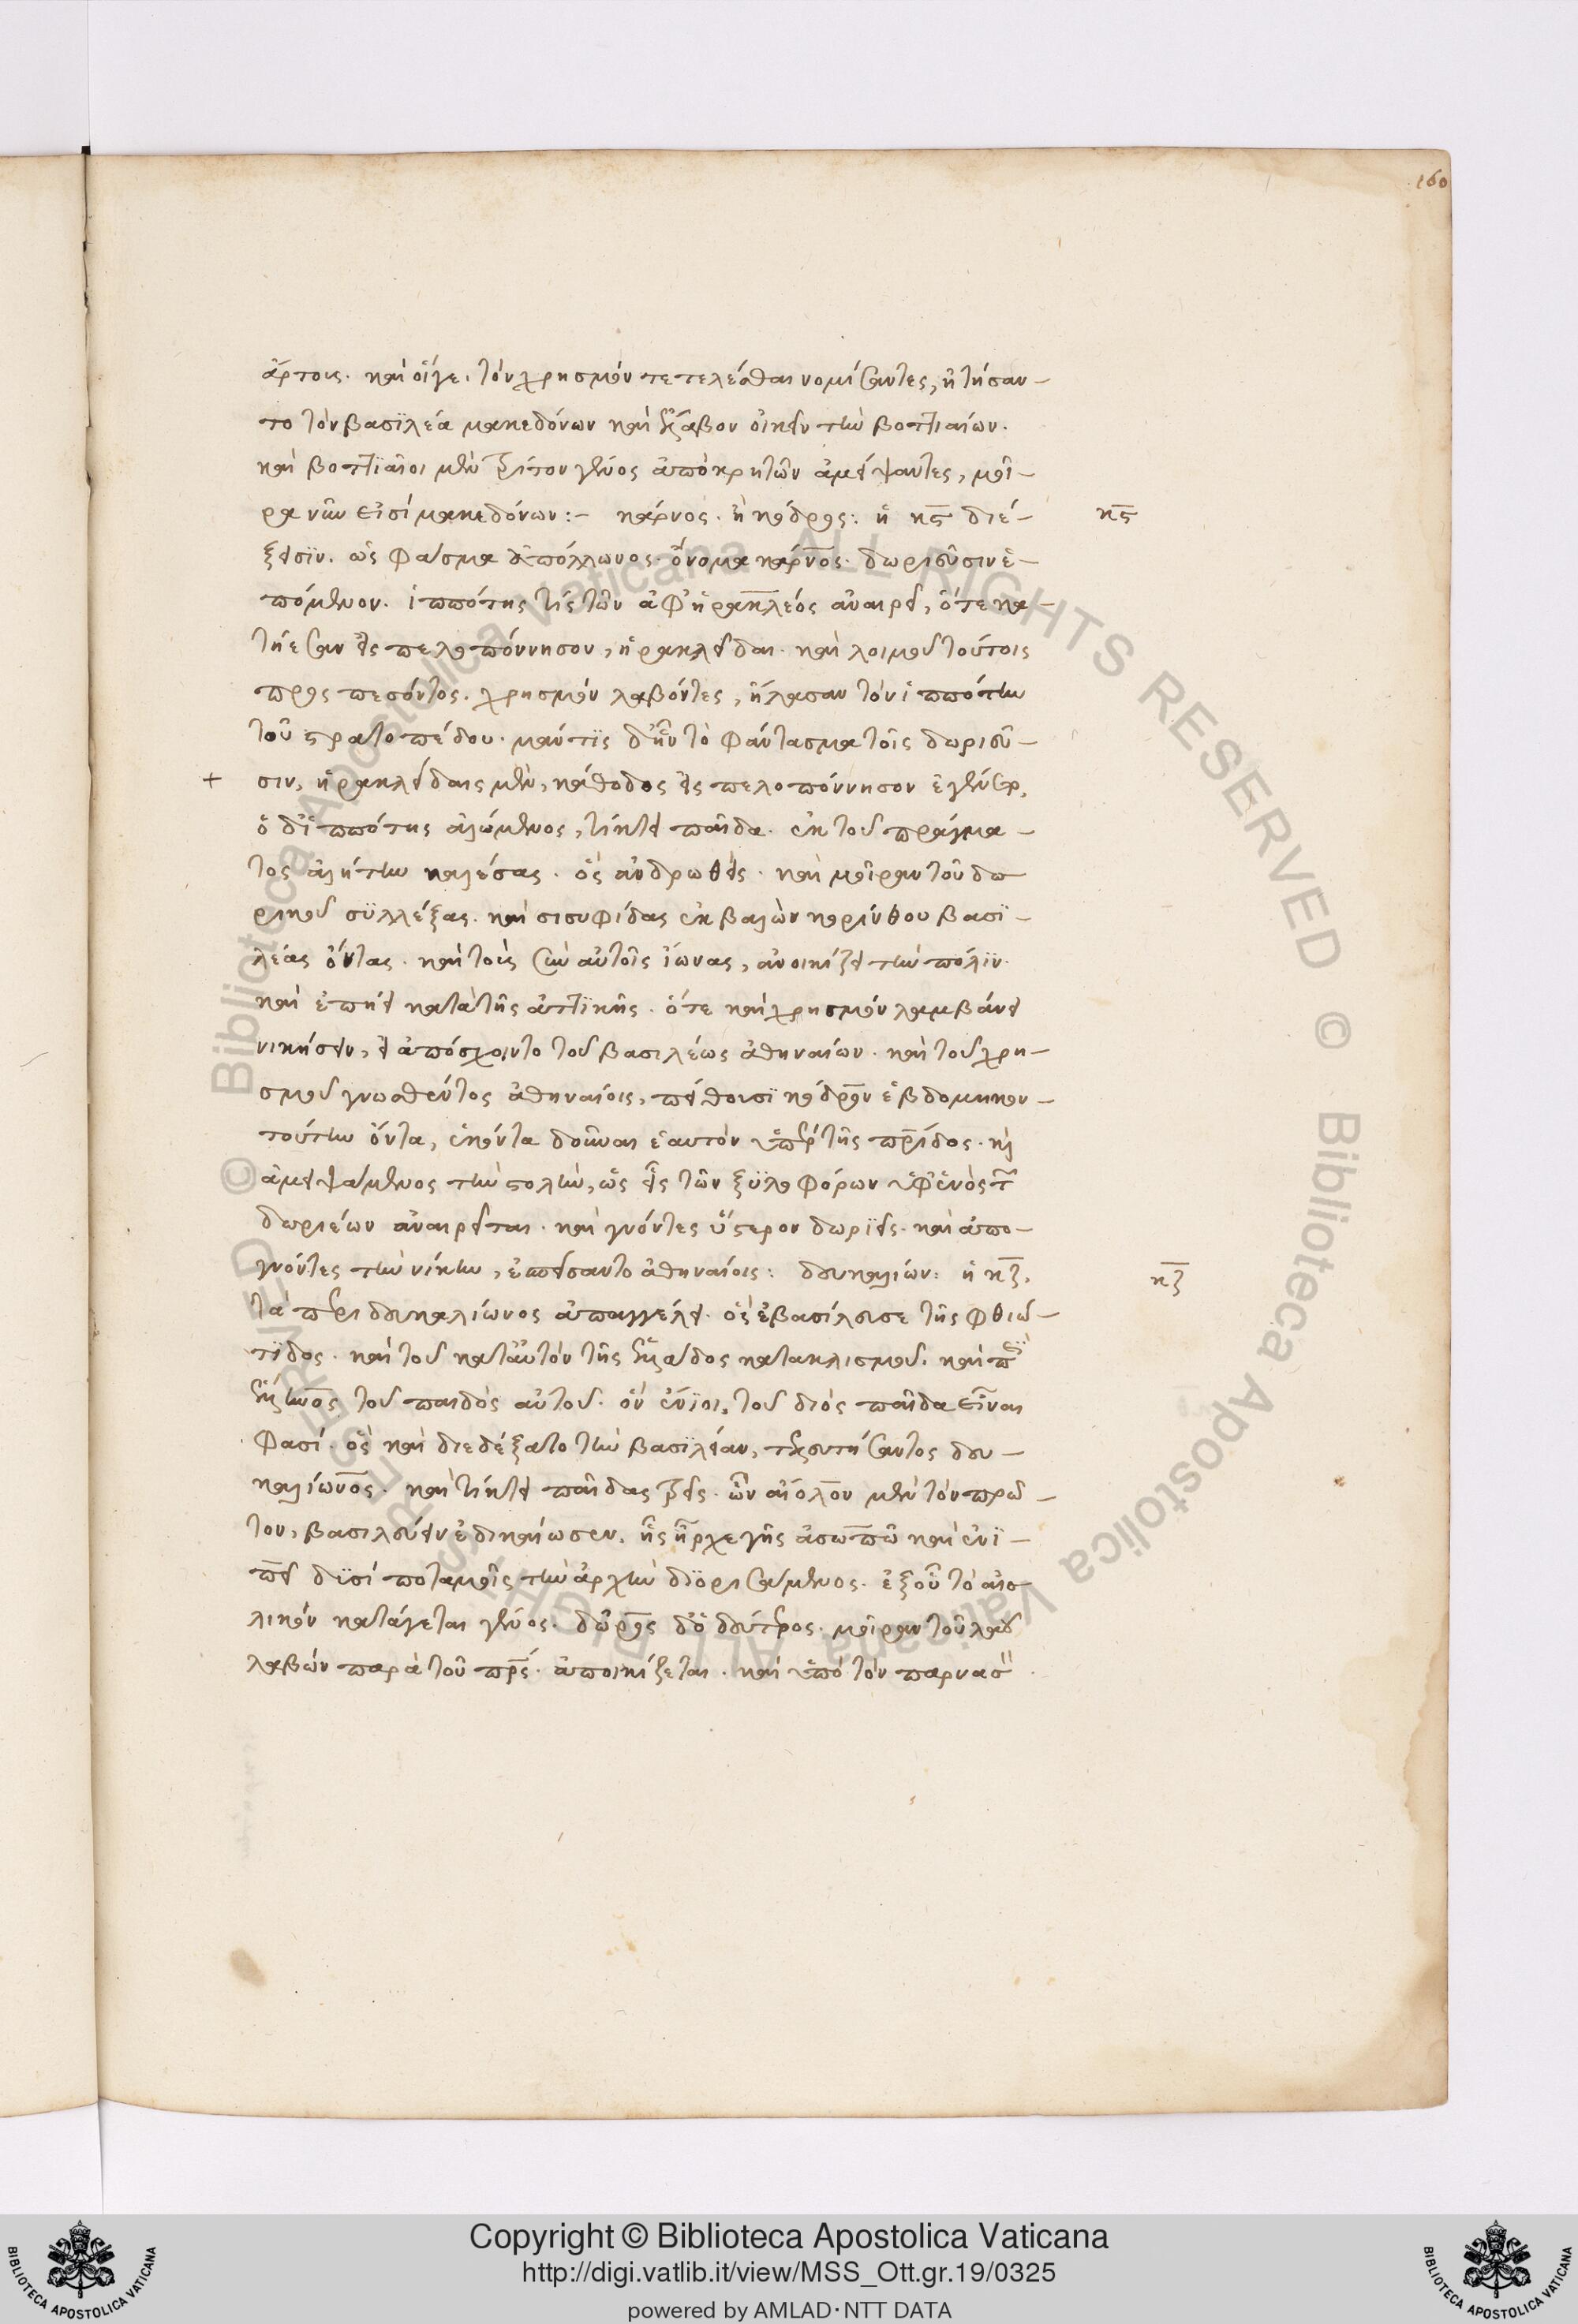 160
ἄρτοις. καὶ οἵγε. τὸν χρησμὸν τετελέσθαι νομίσαντες, ἠτήσαν–
το τὸν βασϊλέα μακεδόνων καὶ ἔλαβον οἰκεῖν τὴν βοττιαίων.
καὶ βοττϊαῖοι μὲν τρίτον γένος ἀπὸ κρητῶν ἀμείψαντες, μοῖ–
ρα νῦν εἰσὶ μακεδόνων:– κάρνος. ἢ κόδρος: ἡ κς διέ–
κς
ξεισϊν. ὡς φάσμα ἀπόλλωνος. ὄνομα κάρνος. δωριεῦσιν ἑ–
πόμενον. ἱππότης τίς τῶν ἀφ' ἡρακλέος ἀναιρεῖ, ὅτε κα–
τήεσαν εἰς πελοπόννησον, ἡρακλεῖδαι. καὶ λοιμοῦ τούτοις
προς πεσόντος. χρησμὸν λαβόντες, ἤλασαν τὸν ἱππότην
τοῦ στρατοπέδου. μάντϊς δ' ἦν τὸ φάντασμα τοῖς δωριεῦ–
+ σιν, ἡρακλείδαις μὲν, κάθοδος εἰς πελοπόννησον ἐγένετο,
ὁ δ' ἱππότης ἀλώμενος, τίκτει παῖδα. ἐκ τοῦ πράγμα–
τος ἀλήτην καλέσας. ὃς ἀνδρωθεὶς. καὶ μοῖραν τοῦ δω
ρικοῦ σϋλλέξας. καὶ σισυφίδας ἐκβαλὼν κορίνθου βασϊ–
λέας ὄντας. καὶ τοὺς σὺν αὐτοῖς ἴωνας, ἀνοικίζει τὴν πόλϊν.
καὶ ἐπῄει κατὰ τῆς ἀττϊκῆς. ὅτε καὶ χρησμὸν λαμβάνει
νικήσειν, εἰ ἀπόσχοιντο τοῦ βασιλέως ἀθηναίων. καὶ τοῦ χρη–
σμοῦ γνωσθέντος ἀθηναίοις, πείθουσϊ κόδρον ἑβδομηκον–
τούτην ὄντα, ἑκόντα δοῦναι ἑαυτὸν ὑπὲρ τῆς πρίδος. κὶ
ἀμειψάμενος τὴν στολὴν, ὡς εἷς τῶν ξϋλοφόρων ὑφ' ἑνὸς τ
δωριέων ἀναιρεῖται. καὶ γνόντες ὕστερον δωρϊεῖς. καὶ ἀπο–
γνόντες τὴν νίκην, ἐσπείσαντο ἀθηναίοις: δευκαλιών: ἡ κζ.
κζ
τὰ περὶ δευκαλίωνος ἀπαγγέλει. ὃς ἐβασίλευσε τῆς φθιώ–
τϊδος. καὶ τοῦ κατ' αὐτὸν τῆς ἑλλάδος κατακλισμοῦ. καὶ π
ἕλληνος τοῦ παιδὸς αὐτοῦ. ὃν ἔνϊοι. τοῦ διὸς παῖδα εἶναι
φασί. ὃς καὶ διεδέξατο τὴν βασϊλείαν, τελευτήσαντος δευ–
καλίωνος. καὶ τίκτει παῖδας τρεῖς. ὧν αἴολον μὲν τὸν πρῶ–
τον, βασιλεύειν ἐδικαίωσεν. ἧς ἦρχε γῆς ἀσωπῶ καὶ ἐνϊ–
πεῖ δϋσί ποταμοῖς τὴν ἀρχὴν δϊορισάμενος. ἐξ οὗ τὸ αἰο
λικὸν κατάγεται γένος. δῶρος δ' ὁ δεύτερος. μοῖραν τοῦ λαοῦ
λαβὼν παρὰ τοῦ πρς. ἀποικίζεται. καὶ ὑπὸ τὸν παρνασ
Copyright © Biblioteca Apostolica Vaticana
http://digi.vatlib.it/view/MSS_Ott.gr.19/0325
powered by AMLAD·NTT DATA